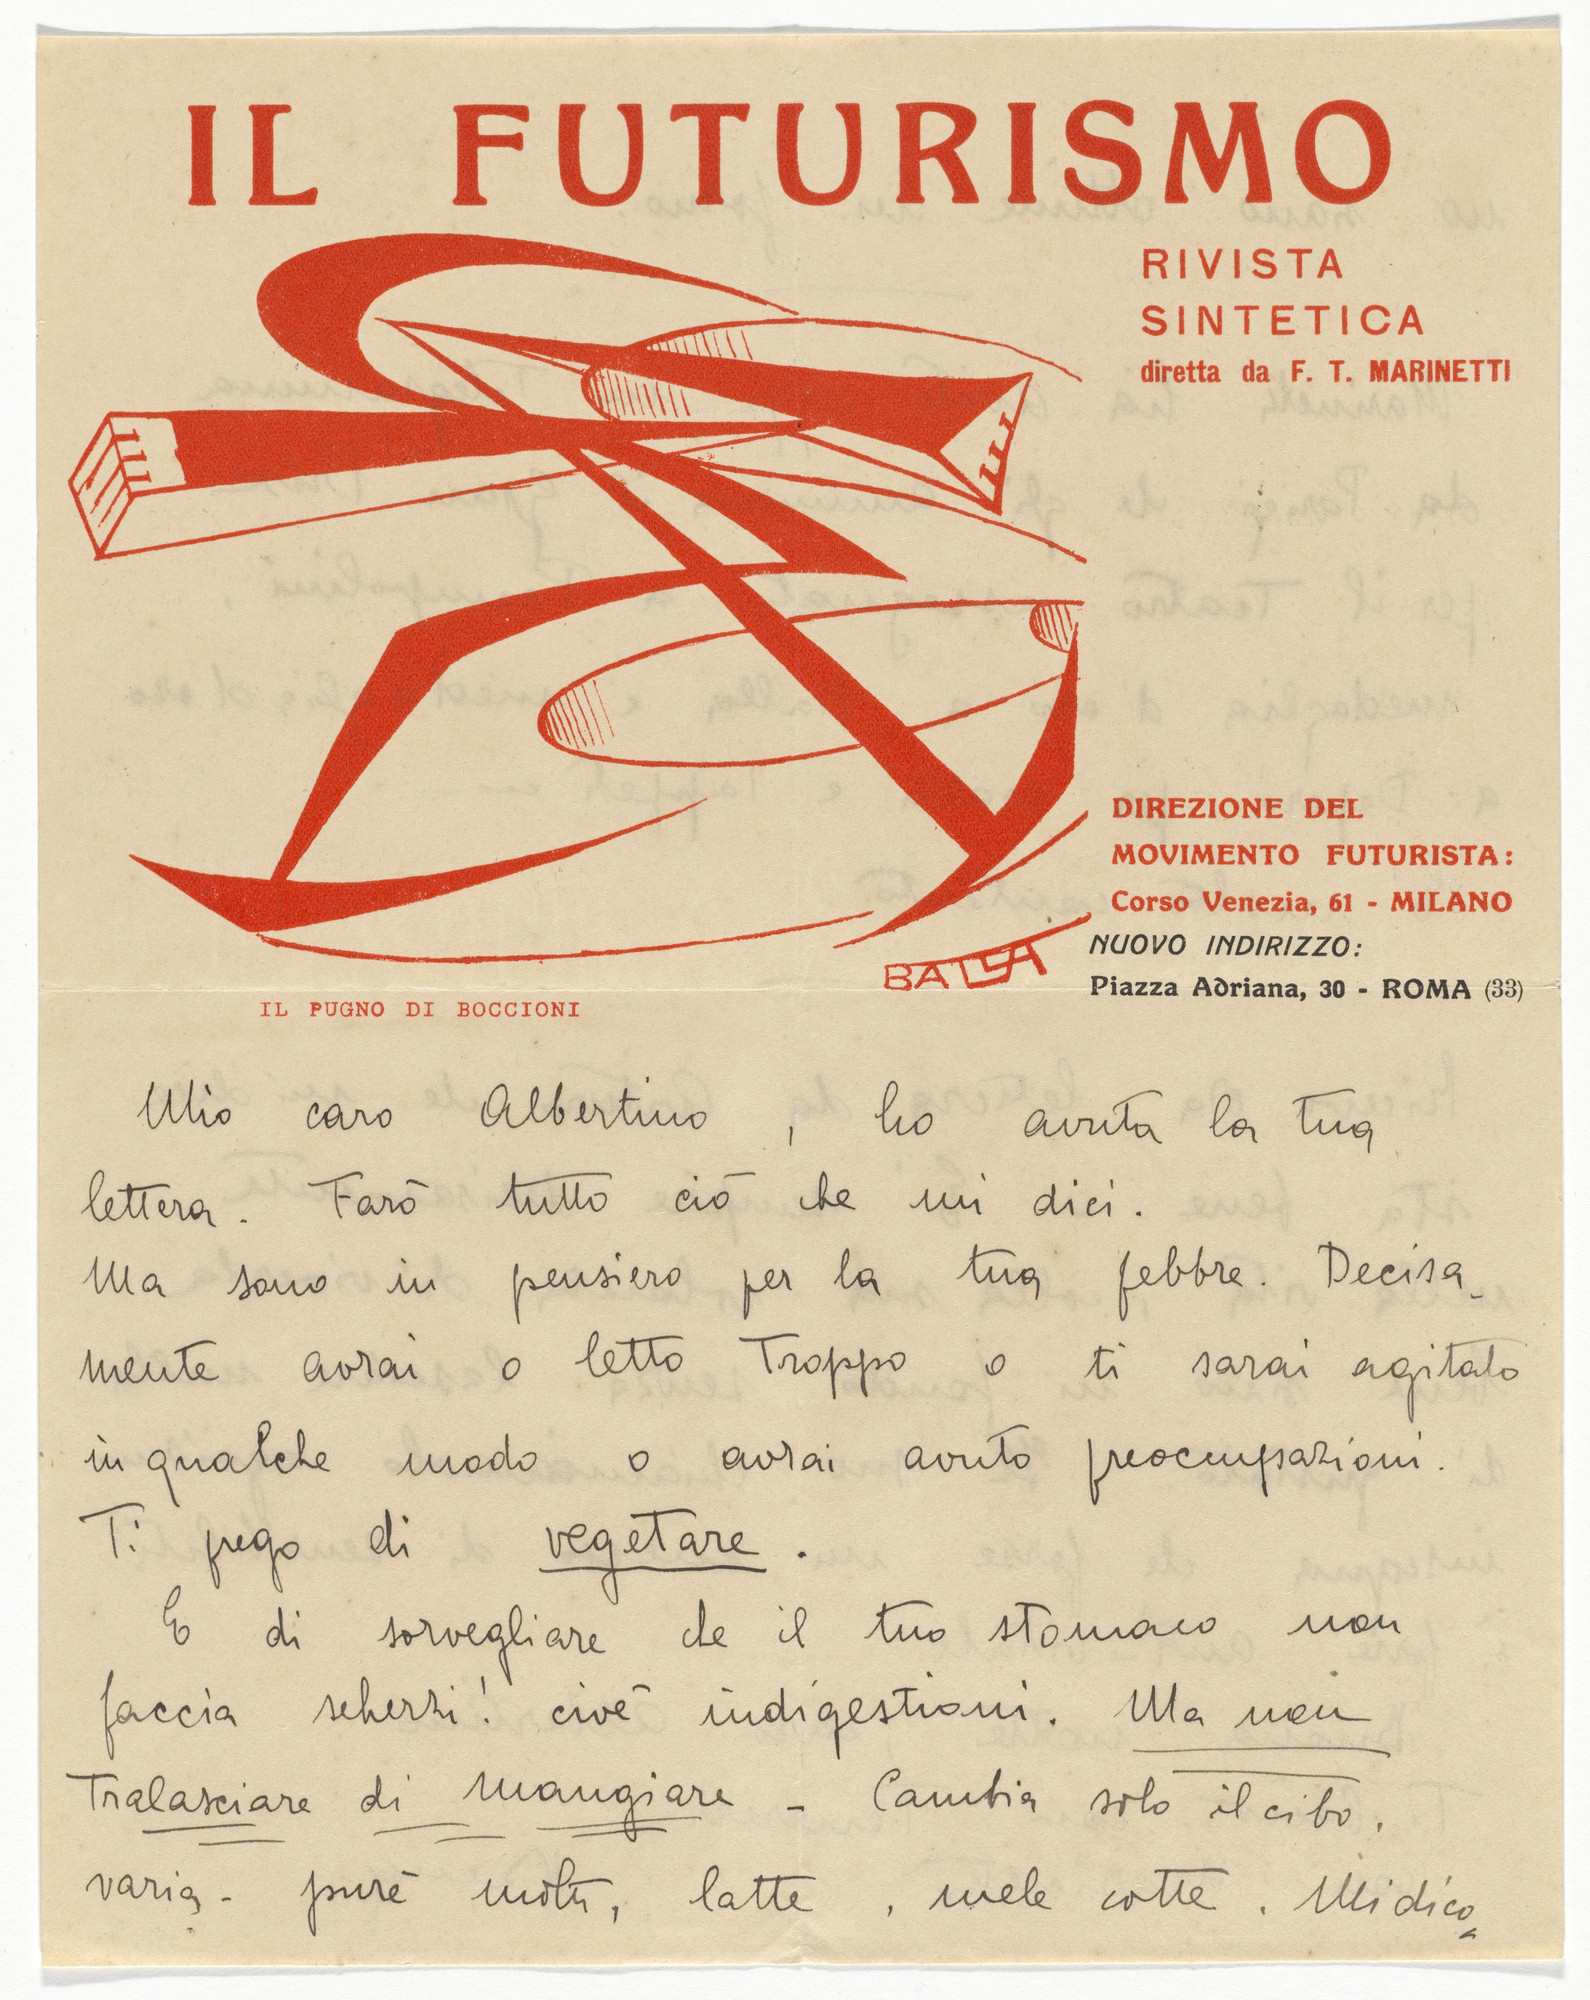 IL FUTURISMO
RIVISTA
SINTETICA
diretta da F. T. MARINETTI
DIREZIONE DEL
MOVIMENTO FUTURISTA:
Corso Venezia, 61 - MILANO
NUOVO INDIRIZZO:
Piazza Adriana, 30 - ROMA (33)
BALLA
IL PUGNO DI BOCCIONI
Mio caro Albertino, ho avuta la tua
lettera. Farò tutto ciò che mi dici.
Ma sono in pensiero per la tua febbre. Decisa-
mente avrai o letto troppo o ti sarai agitato
in qualche modo o avrai avuto preoccupazioni.
Ti prego di vegetare.
E di sorvegliare che il tuo stomaco non
faccia scherzi! cioè indigestioni. Ma non
tralasciare di mangiare - Cambia solo il cibo,
varia - purè molti, latte, mele cotte. Mi dico